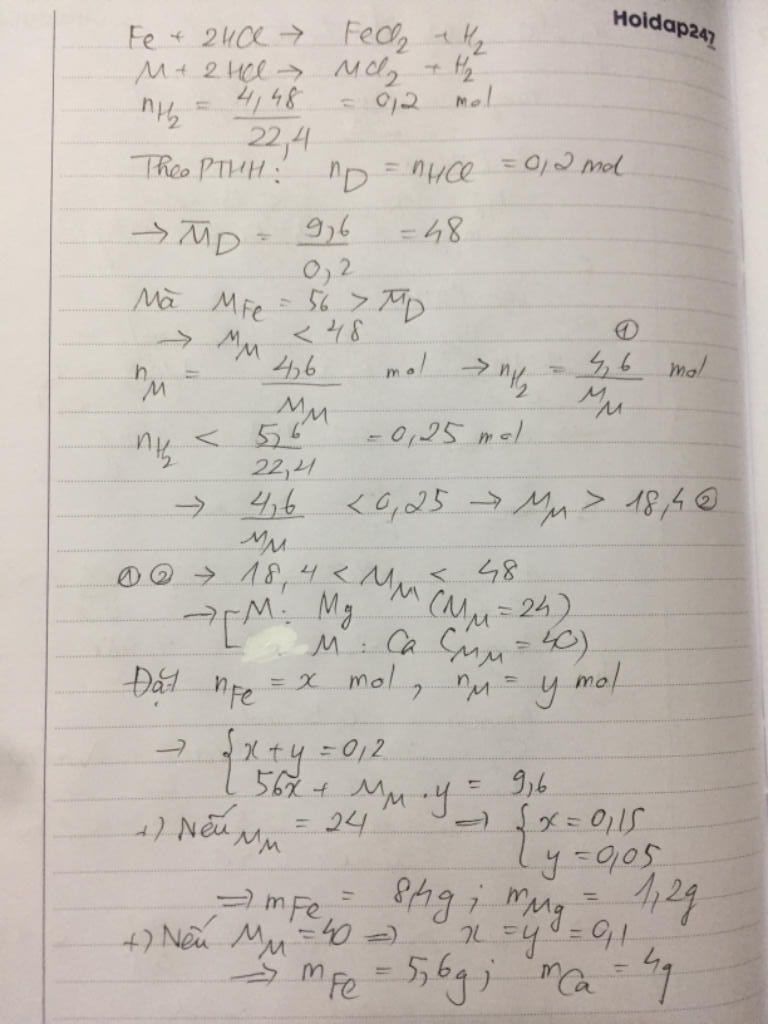 Hoidap247
Fe + 2HCl → FeCl₂ + H₂
M + 2HCl → MCl₂ + H₂
n_H₂ = 4,48/22,4 = 0,2 mol
Theo PTHH: n_D = n_HCl = 0,2 mol
→ M̅_D = 9,6/0,2 = 48
Mà M_Fe = 56 > M̅_D
→ M_M < 48 ①
n_M = 4,6/M_M mol → n_H₂ = 4,6/M_M mol
n_H₂ < 5,6/22,4 = 0,25 mol
→ 4,6/M_M < 0,25 → M_M > 18,4 ②
① ② → 18,4 < M_M < 48
→ [ M: Mg (M_M = 24)
M: Ca (M_M = 40)
Đặt n_Fe = x mol, n_M = y mol
→ { x + y = 0,2
56x + M_M . y = 9,6
+) Nếu M_M = 24 ⇒ { x = 0,15
y = 0,05
⇒ m_Fe = 8,4g ; m_Mg = 1,2g
+) Nếu M_M = 40 ⇒ x = y = 0,1
⇒ m_Fe = 5,6g ; m_Ca = 4g